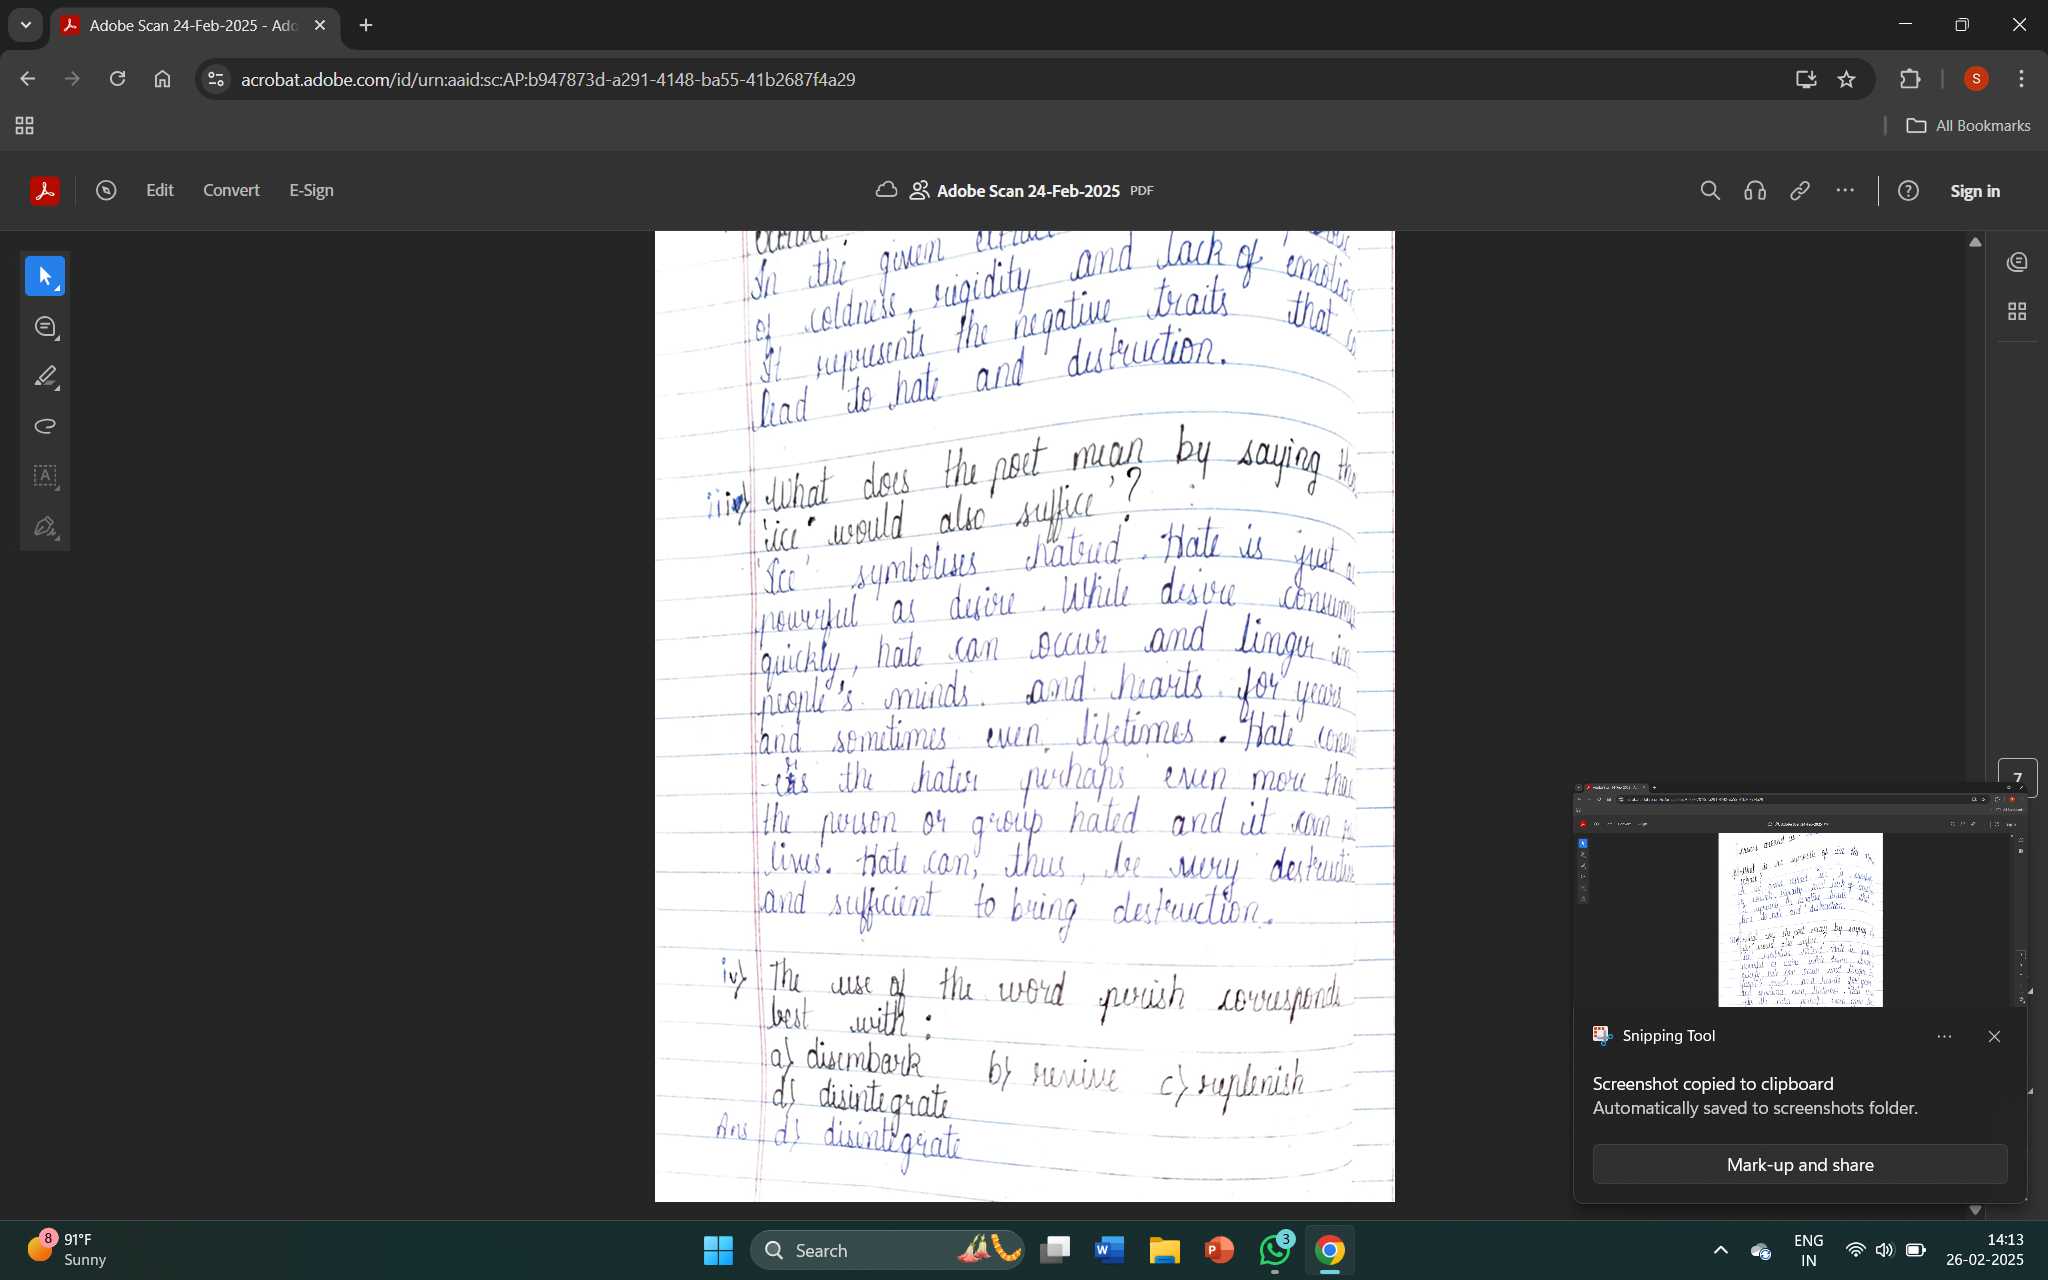 Adobe Scan 24-Feb-2025 - Ado
acrobat.adobe.com/id/urn:aaid:sc:AP:b947873d-a291-4148-ba55-41b2687f4a29
S
All Bookmarks
Edit Convert E-Sign
Adobe Scan 24-Feb-2025 PDF
Sign in
In the given
of coldness, rigidity and lack of emotion
It represents the negative traits that
lead to hate and destruction.
iii) What does the poet mean by saying
'ice' would also suffice'?
'Ice' symbolises hatred. Hate is just
powerful as desire. While desire
quickly, hate can occur and linger in
people's minds. and hearts for years
and sometimes even lifetimes. Hate
the hater perhaps even more than
the person or group hated and it can
lives. Hate can, thus, be very destructive
and sufficient to bring destruction.
iv) The use of the word perish corresponds
best with :
a) disembark b) revive c) replenish
d) disintegrate
Ans d) disintegrate
7
Snipping Tool
Screenshot copied to clipboard
Automatically saved to screenshots folder.
Mark-up and share
8
91°F
Sunny
Search
3
ENG
IN
14:13
26-02-2025